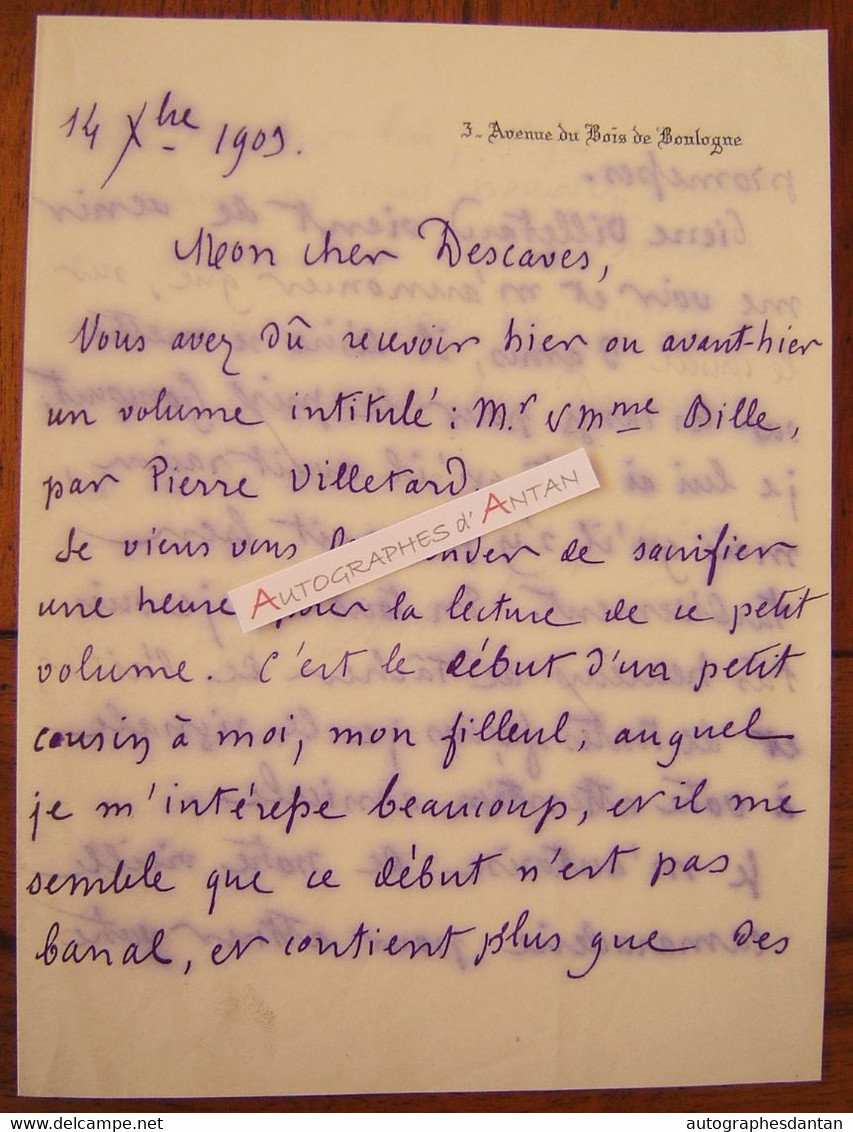 14 Xbre 1903.
3, Avenue du Bois de Boulogne
Mon cher Descaves,
Vous avez dû recevoir hier ou avant-hier
un volume intitulé : Mr & Mme Bille,
par Pierre Villetard.
AUTOGRAPHES d'ANTAN
Je viens vous de sacrifier
une heure pour la lecture de ce petit
volume. C'est le début d'un petit
cousin à moi, mon filleul, auquel
je m'intéresse beaucoup, et il me
semble que ce début n'est pas
banal, et contient plus que des
delcampe.net
autographesdantan